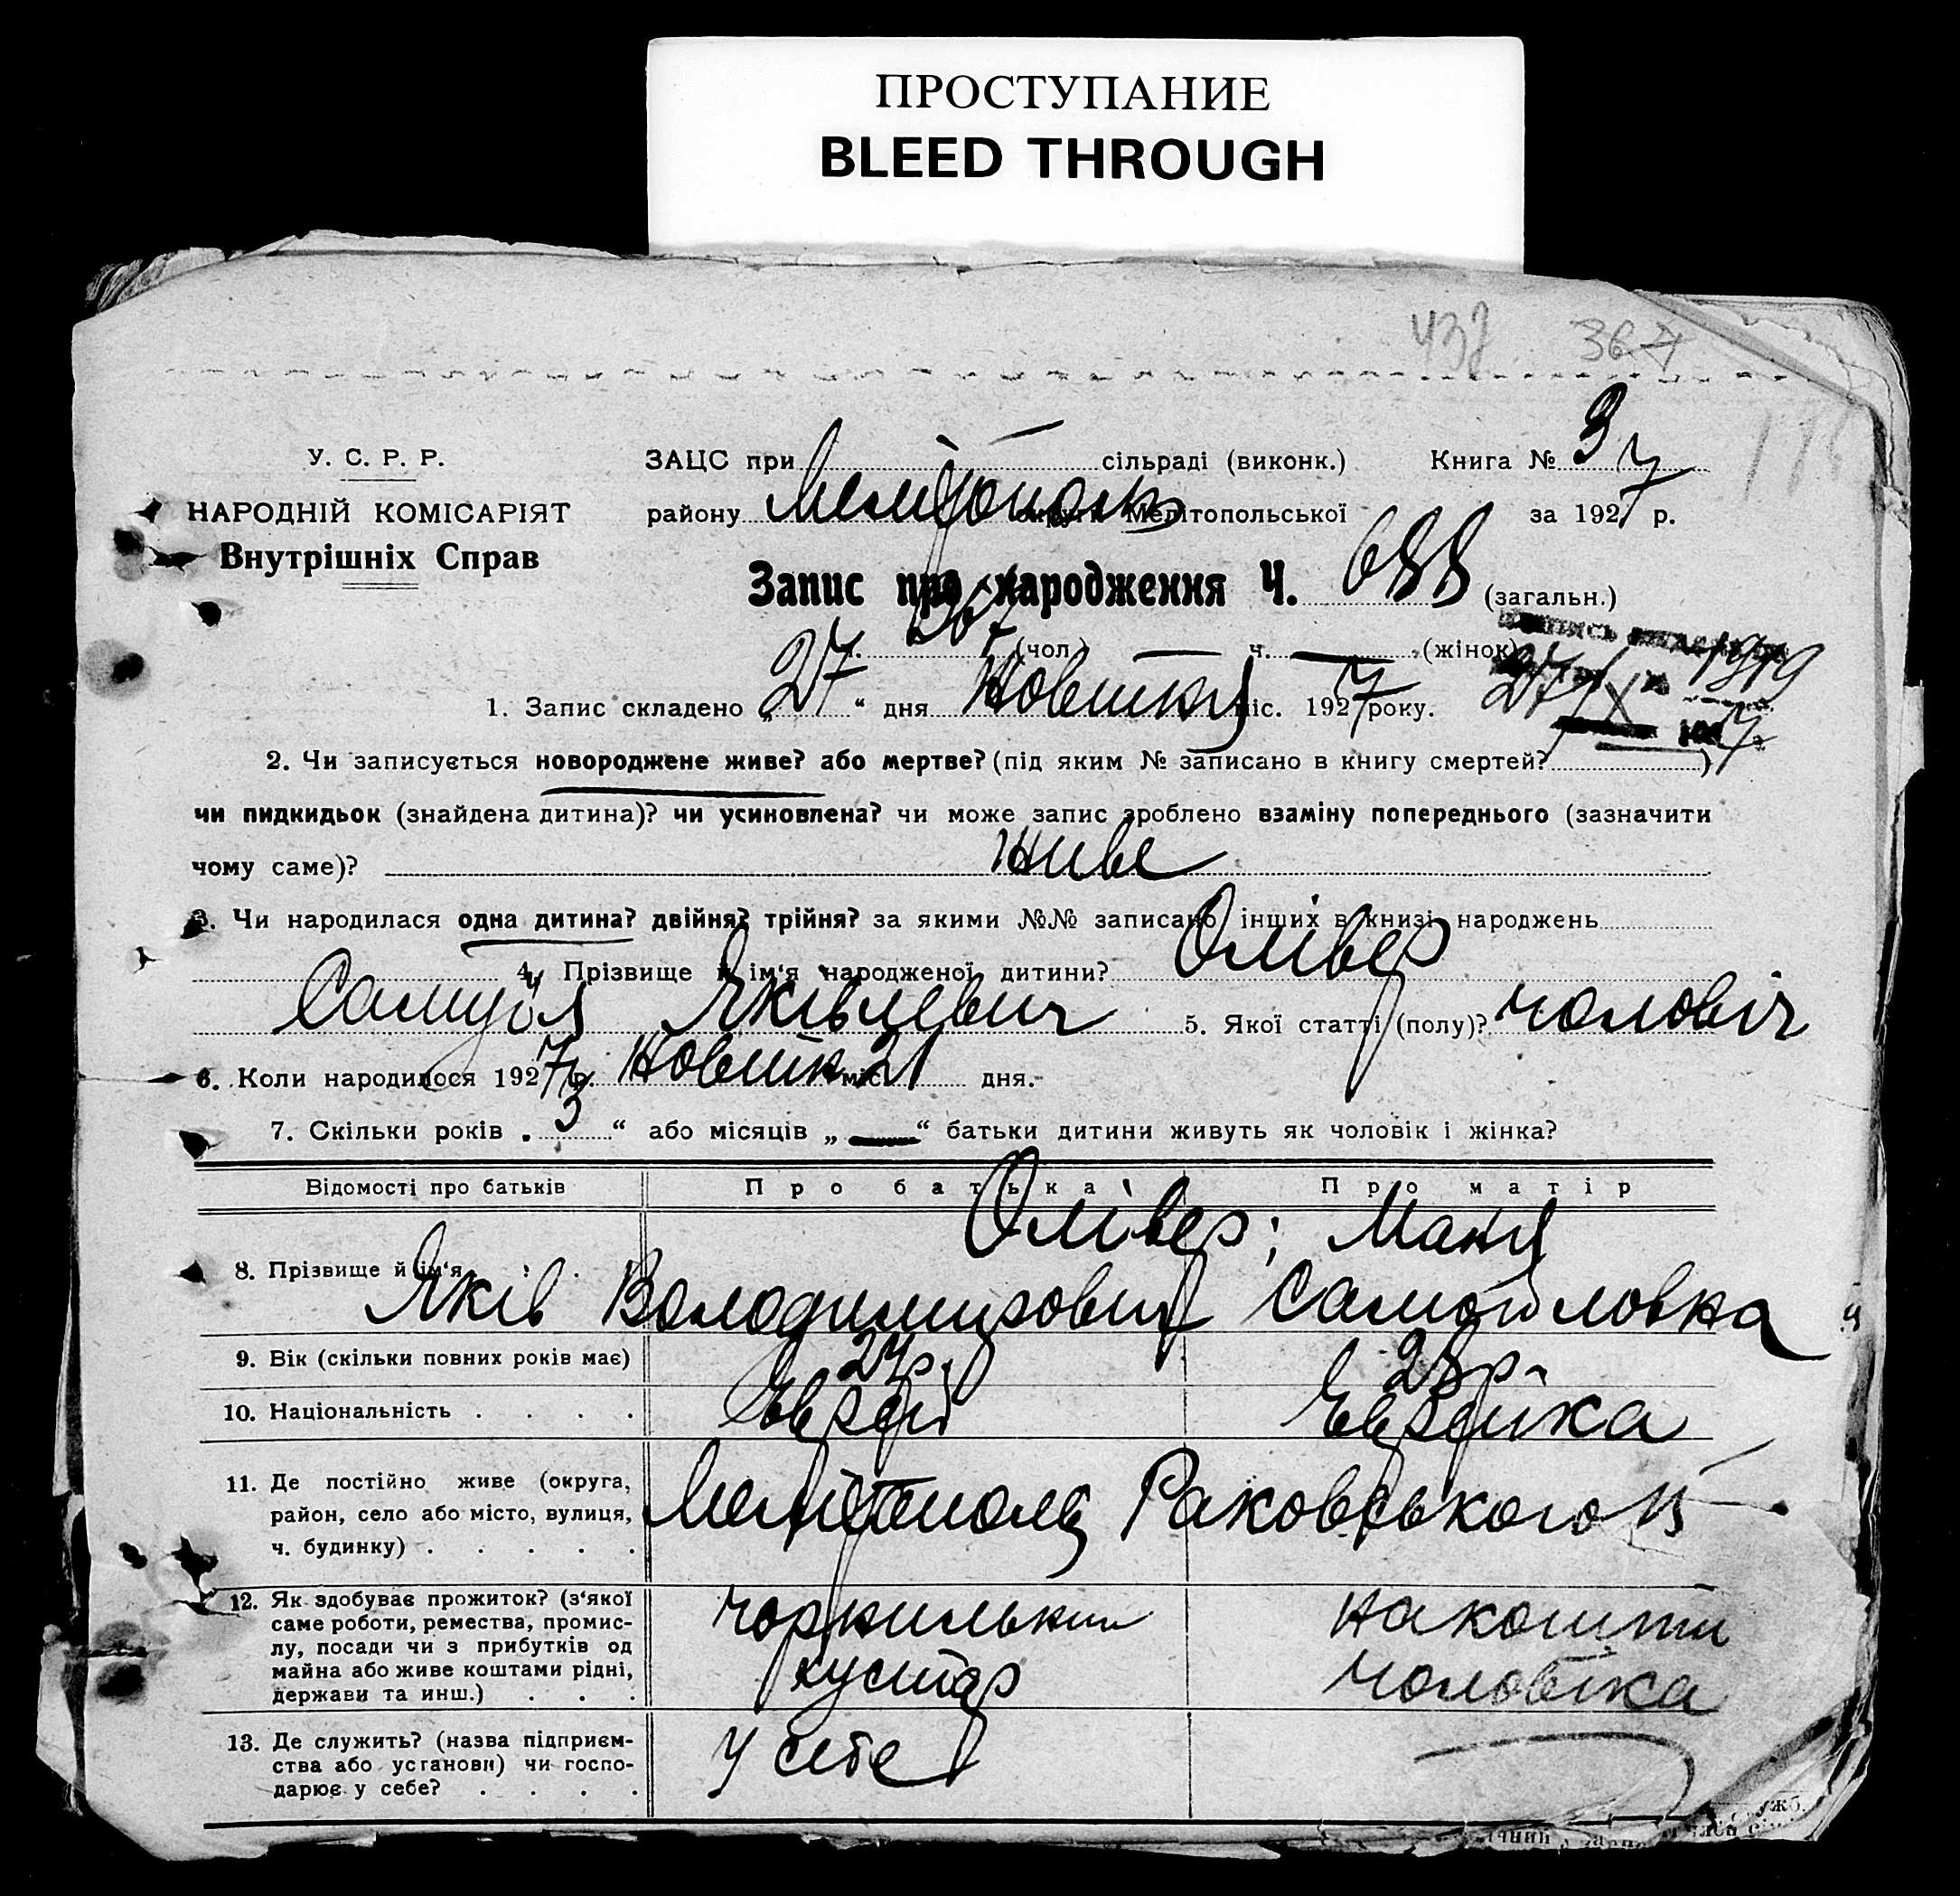 ПРОСТУПАНИЕ
BLEED THROUGH
367
У. С. Р. Р.
НАРОДНІЙ КОМІСАРІЯТ
Внутрішніх Справ
ЗАЦС при — сільраді (виконк.) Книга №
району Мелітополь округи Мелітопольської за 1927 р.
Запис про народження Ч. 688 (загальн.)
ч. 367 (чол.) — ч. — (жінок)
1. Запис складено „27“ дня Новштня міс. 1927 року.
2. Чи записується новороджене живе? або мертве? (під яким № записано в книгу смертей? )
чи пидкидьок (знайдена дитина)? чи усиновлена? чи може запис зроблено взаміну попереднього (зазначити
чому саме)? живе
3. Чи народилася одна дитина? двійня? трійня? за якими №№ записано інших в книзі народжень
4. Прізвище й ім‘я народженої дитини? Олівер
Самуїл Яківлевич 5. Якої статті (полу)? чоловіч
6. Коли народилося 1927 р. Новштн міс. 21 дня.
7. Скільки років „3“ або місяців „—“ батьки дитини живуть як чоловік і жінка?
Відомості про батьків Про батька Про матір
Олівер; Маня
8. Прізвище й ім‘я Яків Володимирович Самойловна
9. Вік (скільки повних років має) 24 р. 23 р.
10. Національність Єврей Єврейка
11. Де постійно живе (округа,
район, село або місто, вулиця,
ч. будинку) Мелітополь Раковського 15
12. Як здобуває прожиток? (з‘якої
саме роботи, ремества, промис-
лу, посади чи з прибутків од
майна або живе коштами рідні,
держави та инш.) чорнильний кустар на кошти чоловіка
13. Де служить? (назва підприєм-
ства або установи) чи госпо-
дарює у себе? У себе